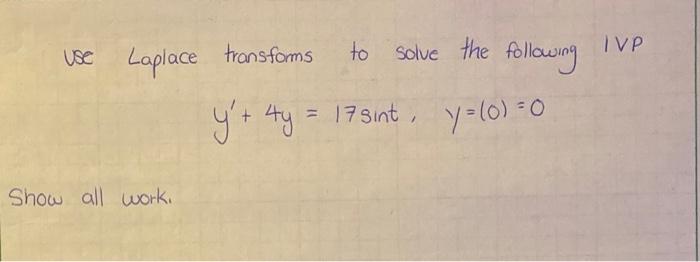 use Laplace transforms to solve the following IVP
y' + 4y = 17sint, y=(0)=0
Show all work.